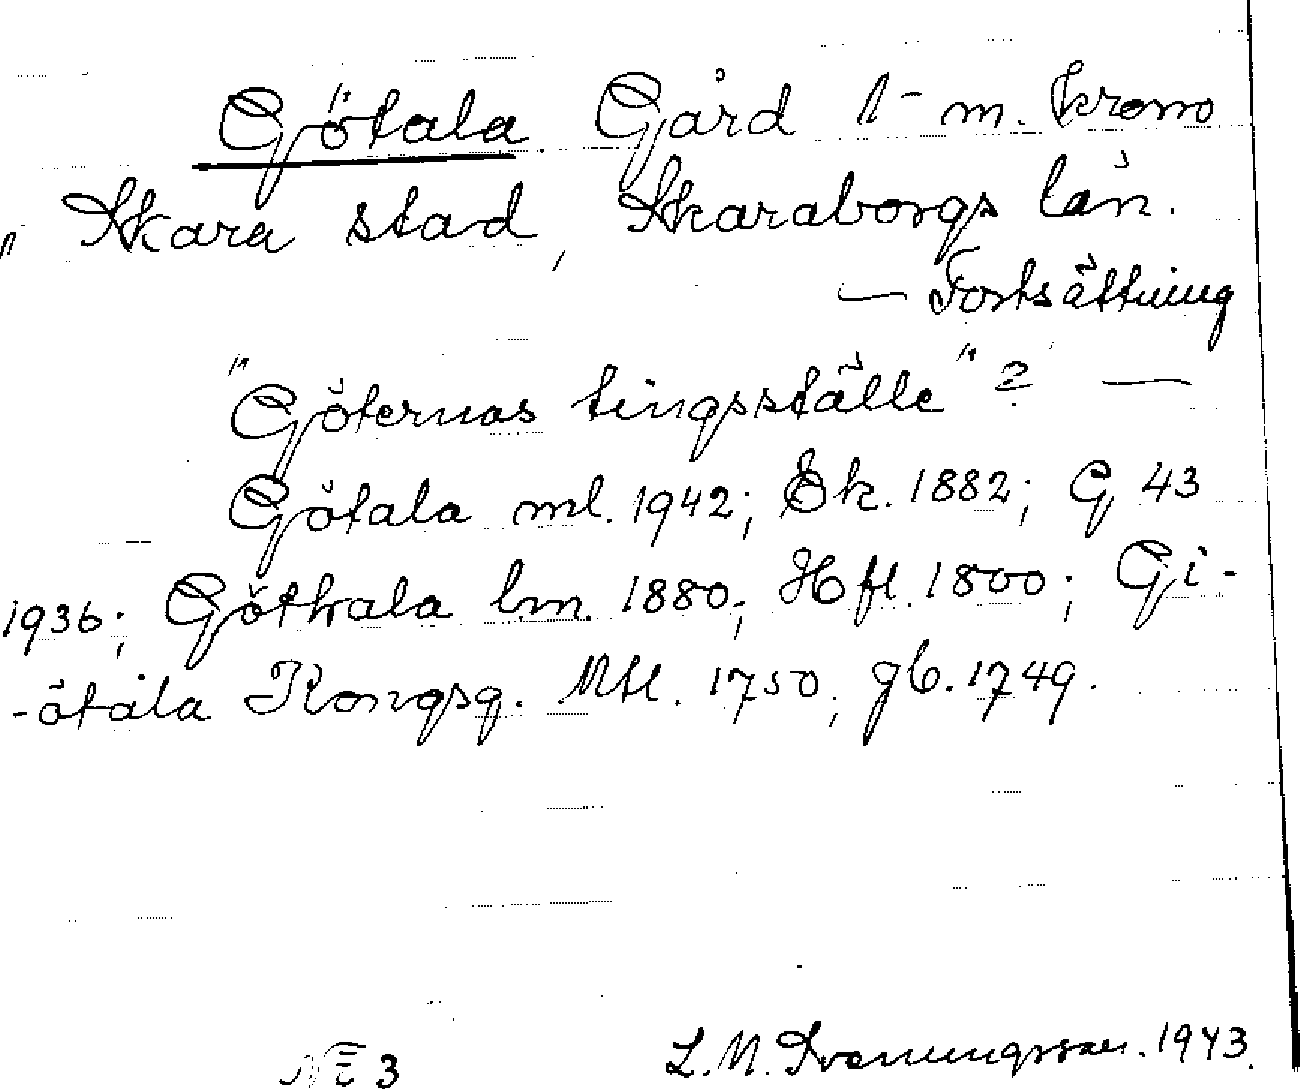 Götala Gård 1 m. krono
" Skara stad, Skaraborgs län.
— Fortsättning
"Göternas tingsställe" ? —
Götala ml. 1942; Ek. 1882; G 43
1936; Göthala lm. 1880; Hfl. 1800; Gi-
-ötala Kongsg. Mtl. 1750, gb. 1749.
NE 3 L. M. Svenungsson. 1943.